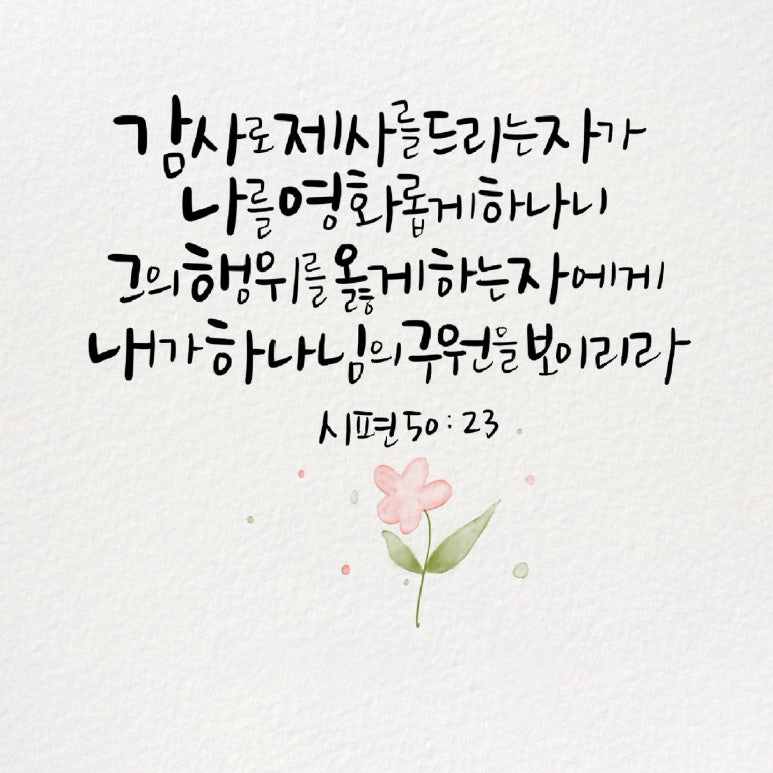 감사로 제사를 드리는 자가
나를 영화롭게 하나니
그의 행위를 옳게 하는 자에게
내가 하나님의 구원을 보이리라
시편 50:23